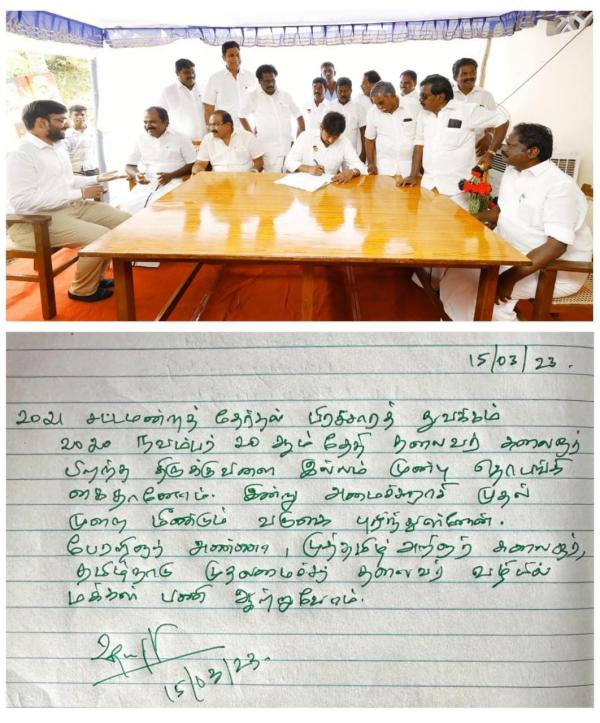 15/03/23.
2021 சட்டமன்றத் தேர்தல் பிரச்சாரத் துவக்கம்
2020 நவம்பர் 20 ஆம் தேதி தலைவர் கலைஞர்
பிறந்த திருக்குவளை இல்லம் முன்பு தொடங்கி
கைதானோம். இன்று அமைச்சராகி முதல்
முறை மீண்டும் வருகை புரிந்துள்ளேன்.
பேரறிஞர் அண்ணா, முத்தமிழ் அறிஞர் கலைஞர்,
தமிழ்நாடு முதலமைச்சர் தலைவர் வழியில்
மக்கள் பணி ஆற்றுவோம்.
15/03/23.